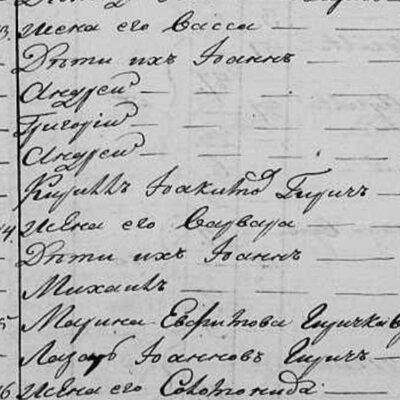 3. жена его Васса
Дѣти ихъ Іоаннъ
Андрей
Григорій
Андрей
Кириллъ Іоакимов Гирич
14. жена его Варвара
Дѣти ихъ Іоаннъ
Михаилъ
5 Марина Евфимова
Лазарь Іоанновъ Гирич
16. жена его Соломонида